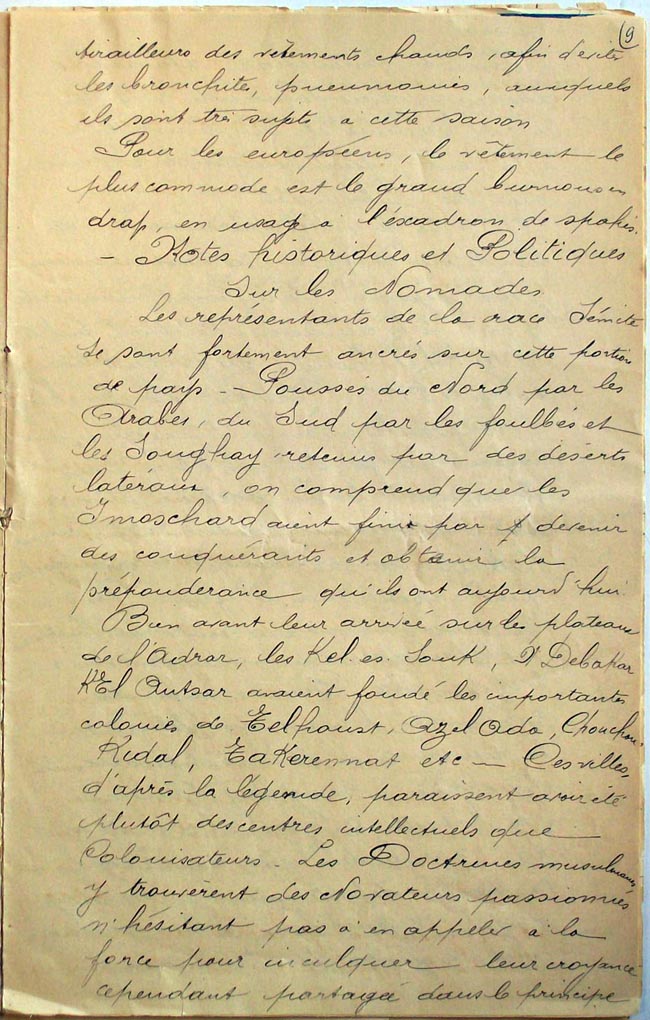 9
tirailleurs des vêtements chauds, afin d'éviter
les bronchites, pneumonies, auxquels
ils sont très sujets à cette saison
Pour les européens, le vêtement le
plus commode est le grand burnous en
drap, en usage à l'éscadron de spahis.
- Notes historiques et Politiques
Sur les Nomades
Les représentants de la race Sémite
se sont fortement ancrés sur cette portion
de pays - Poussés du Nord par les
Arabes, du Sud par les foulbés et
les Songhay, retenus par des déserts
latéraux, on comprend que les
Imoschard aient finir par devenir
des conquérants et obtenir la
prépondérance qu'ils ont aujourd'hui.
Bien avant leur arrivée sur les plateaux
de l'Adrar, les Kel. es. Souk, Debakar
Kel Antsar avaient fondé les importantes
colonies de Eelhoust, Azel Ada,
Kidal, Takerennat etc - Ces villes,
d'après la légende, paraissent avoir été
plutôt des centres intellectuels que
Colonisateurs - Les Doctrines musulmanes
y trouvèrent des Novateurs passionnés
n'hésitant pas à en appeler à la
force pour inculquer leur croyance
cependant partagée dans le principe